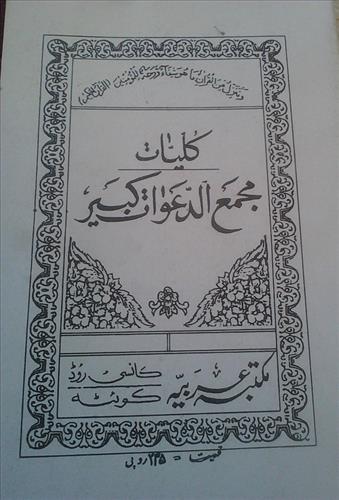 وننزل من القرآن ما هو شفاء ورحمة للمؤمنين (القرآن العظیم)
کلیات
مجمع الدعوات کبیر
مکتبہ عربیہ
کانسی روڈ
کوئٹہ
قیمت = ۲۳۵ روپے